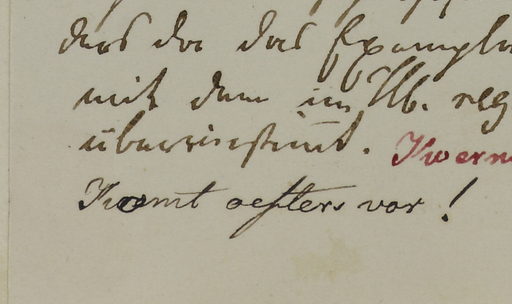 daß da das Exempla
mit dem im Hb. reg
übereinstimt. Kwern
Komt oefters vor!